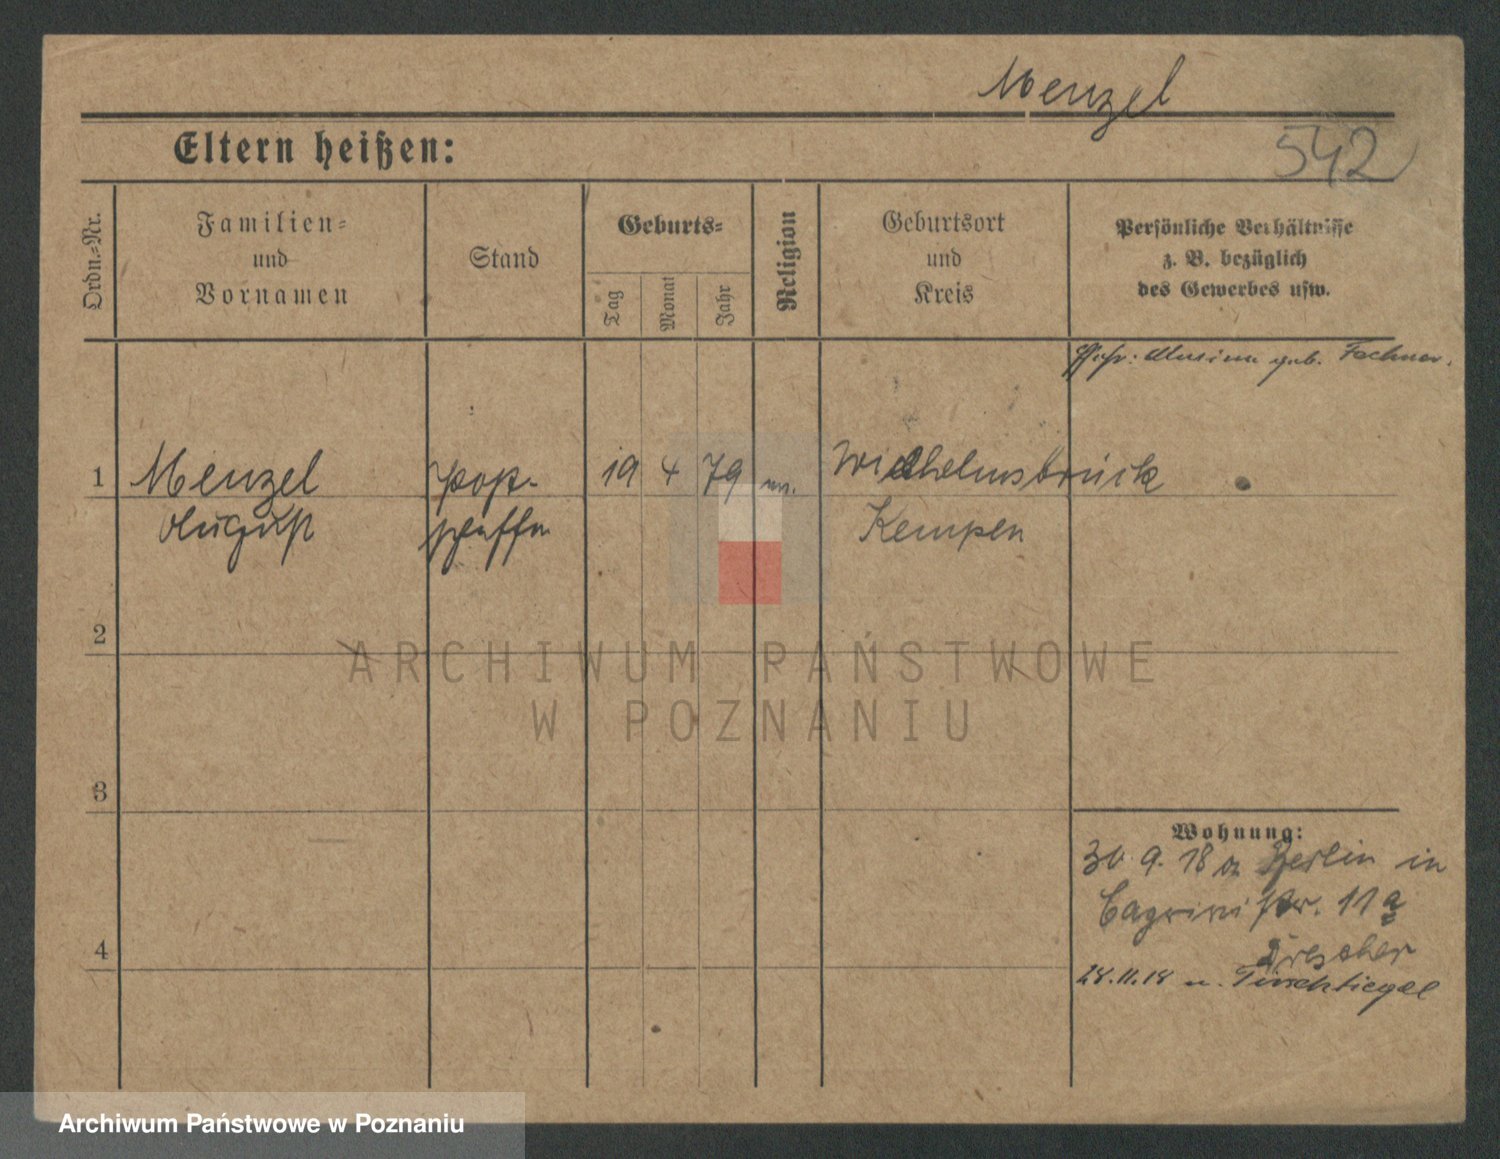 Menzel
542
Eltern heißen:
Ordn.-Nr.
Familien-
und
Vornamen
Stand
Geburts-
Tag
Monat
Jahr
Religion
Geburtsort
und
Kreis
Persönliche Verhältnisse
z. B. bezüglich
des Gewerbes usw.
geb. Fechner.
1
Menzel
19 4 79
Wilhelmsbrück
August
Kempen
2
3
4
Wohnung:
30. 9. 18 Berlin in
str. 11a
Drescher
28.11.18 n. Tirschtiegel
ARCHIWUM PAŃSTWOWE
W POZNANIU
Archiwum Państwowe w Poznaniu